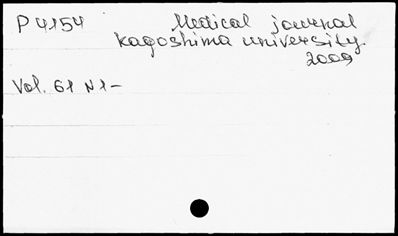 P 4154 Medical journal
Kagoshima university.
2009
Vol. 61 N 1-